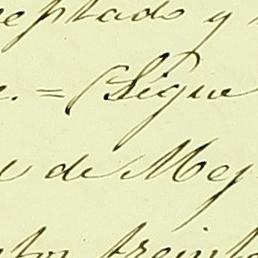 eptado y
e. = (Sigue
e de Mej
ntos treinta